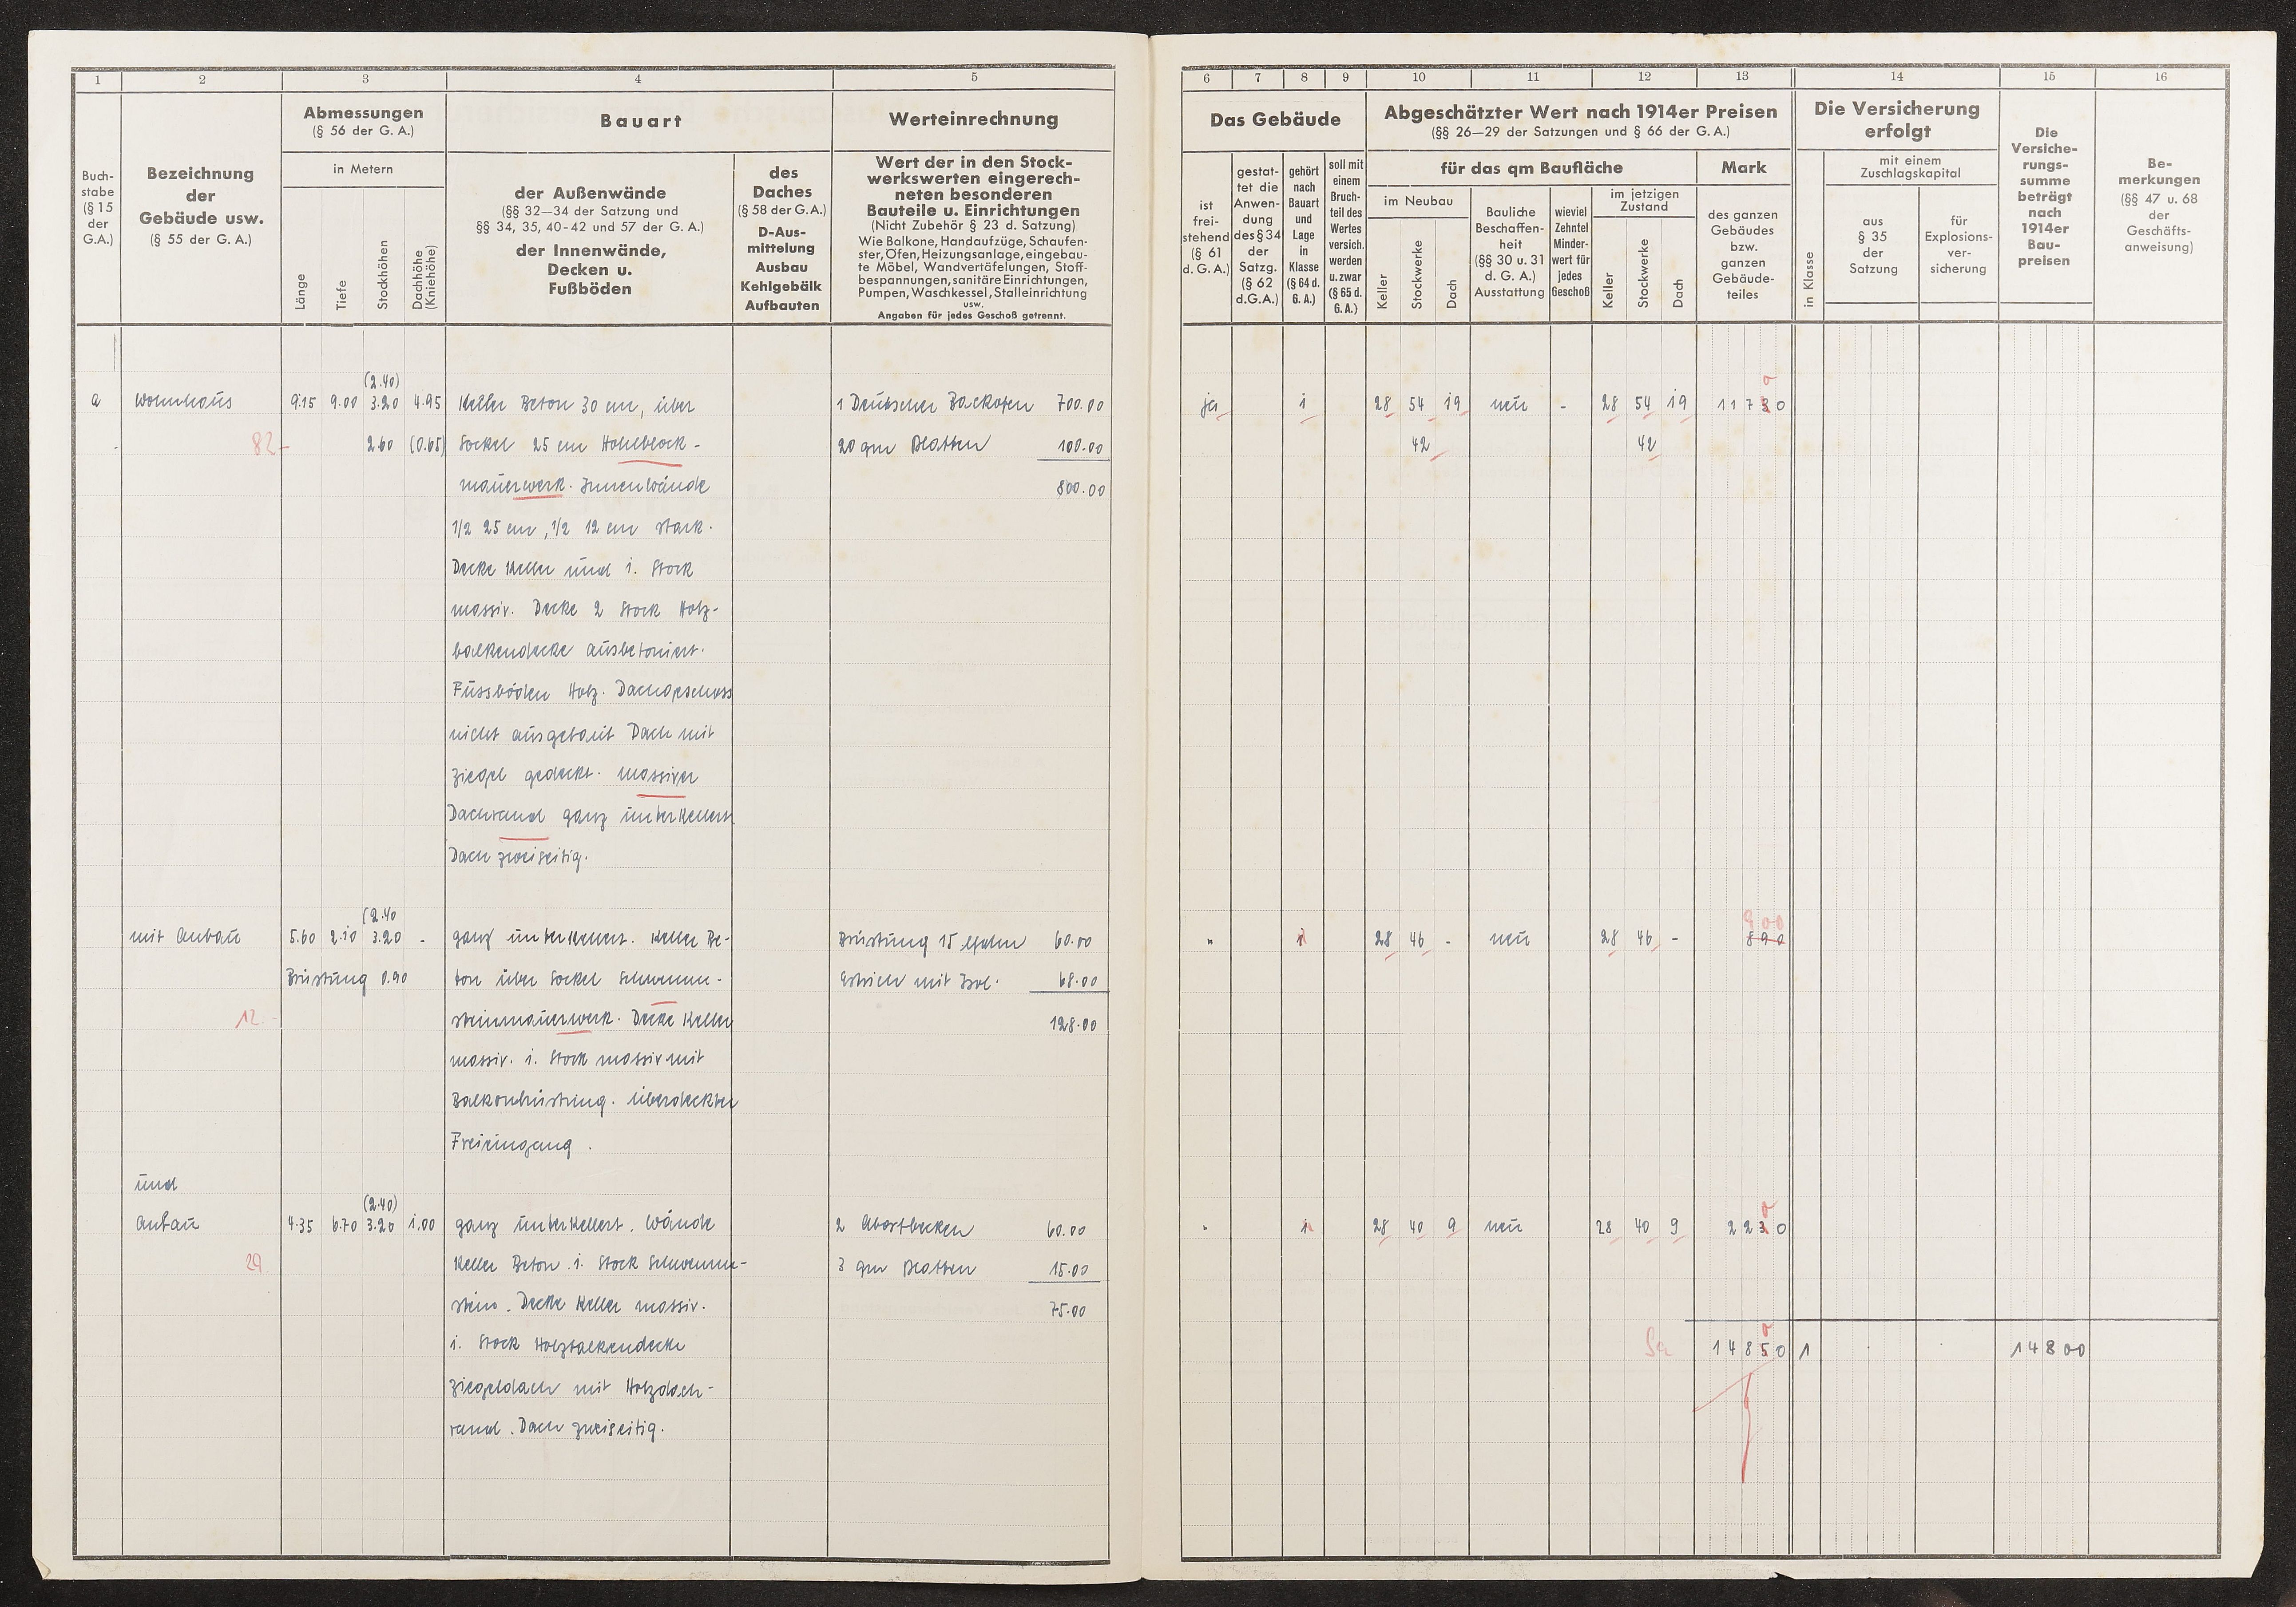 1 2 3 4 5
Buch-
stabe
(§ 15
der
G.A.)
Bezeichnung
der
Gebäude usw.
(§ 55 der G. A.)
Abmessungen
(§ 56 der G. A.)
in Metern
Länge
Tiefe
Stockhöhen
Dachhöhe
(Kniehöhe)
Bauart
der Außenwände
(§§ 32—34 der Satzung und
§§ 34, 35, 40-42 und 57 der G. A.)
der Innenwände,
Decken u.
Fußböden
des
Daches
(§ 58 der G.A.)
D-Aus-
mittelung
Ausbau
Kehlgebälk
Aufbauten
Werteinrechnung
Wert der in den Stock-
werkswerten eingerech-
neten besonderen
Bauteile u. Einrichtungen
(Nicht Zubehör § 23 d. Satzung)
Wie Balkone, Handaufzüge, Schaufen-
ster, Öfen, Heizungsanlage, eingebau-
te Möbel, Wandvertäfelungen, Stoff-
bespannungen, sanitäre Einrichtungen,
Pumpen, Waschkessel, Stalleinrichtung
usw.
Angaben für jedes Geschoß getrennt.
(2.40)
a Wohnhaus 9.15 9.00 3.20 4.95 Keller Beton 30 cm, über 1 Deutscher Backofen 700.00
82 2.60 (0.65) Sockel 25 cm Hohlblock- 20 qm Platten 100.00
mauerwerk. Innenwände 800.00
1/2 25 cm, 1/2 12 cm stark.
Decke Keller und 1. Stock
massiv. Decke 2 Stock Holz-
balkendecke ausbetoniert.
Fussböden Holz. Dachgeschoss
nicht ausgebaut Dach mit
Ziegel gedeckt. massiver
Dachrand ganz unterkellert.
Dach zweiseitig.
(2.40
mit Anbau 5.60 2.10 3.20 - ganz unterkellert. Keller Be- Brüstung 15 lfdm 60.00
Brüstung 0.90 ton über Sockel Schwemm- Estrich mit Isol. 68.00
12. steinmauerwerk. Decke Keller 128.00
massiv. 1. Stock massiv mit
Balkonbrüstung. überdeckter
Freieingang.
und
(2.40)
Anbau 4.35 6.70 3.20 1.00 ganz unterkellert. Wände 2 Abortbecken 60.00
29. Keller Beton. 1. Stock Schwemm- 3 qm Platten 15.00
stein. Decke Keller massiv. 75.00
1. Stock Holzbalkendecke
Ziegeldach mit Holzdach-
rand. Dach zweiseitig.
6 7 8 9 10 11 12 13 14 15 16
Das Gebäude
ist
frei-
stehend
(§ 61
d. G. A.)
gestat-
tet die
Anwen-
dung
des § 34
der
Satzg.
(§ 62
d.G.A.)
gehört
nach
Bauart
und
Lage
in
Klasse
(§ 64 d.
G. A.)
soll mit
einem
Bruch-
teil des
Wertes
versich.
werden
u. zwar
(§ 65 d.
G. A.)
Abgeschätzter Wert nach 1914er Preisen
(§§ 26—29 der Satzungen und § 66 der G. A.)
für das qm Baufläche
im Neubau
Keller
Stockwerke
Dach
Bauliche
Beschaffen-
heit
(§§ 30 u. 31
d. G. A.)
Ausstattung
wieviel
Zehntel
Minder-
wert für
jedes
Geschoß
im jetzigen
Zustand
Keller
Stockwerke
Dach
Mark
des ganzen
Gebäudes
bzw.
ganzen
Gebäude-
teiles
Die Versicherung
erfolgt
in Klasse
mit einem
Zuschlagskapital
aus
§ 35
der
Satzung
für
Explosions-
ver-
sicherung
Die
Versiche-
rungs-
summe
beträgt
nach
1914er
Bau-
preisen
Be-
merkungen
(§§ 47 u. 68
der
Geschäfts-
anweisung)
0
ja 1 28 54 19 neu - 28 54 19 11730
42 42
900
" 1 28 46 - neu 28 46 - 890
0
" 1 28 40 9 neu 28 40 9 2230
0
Sa 14850 1 . . 14800